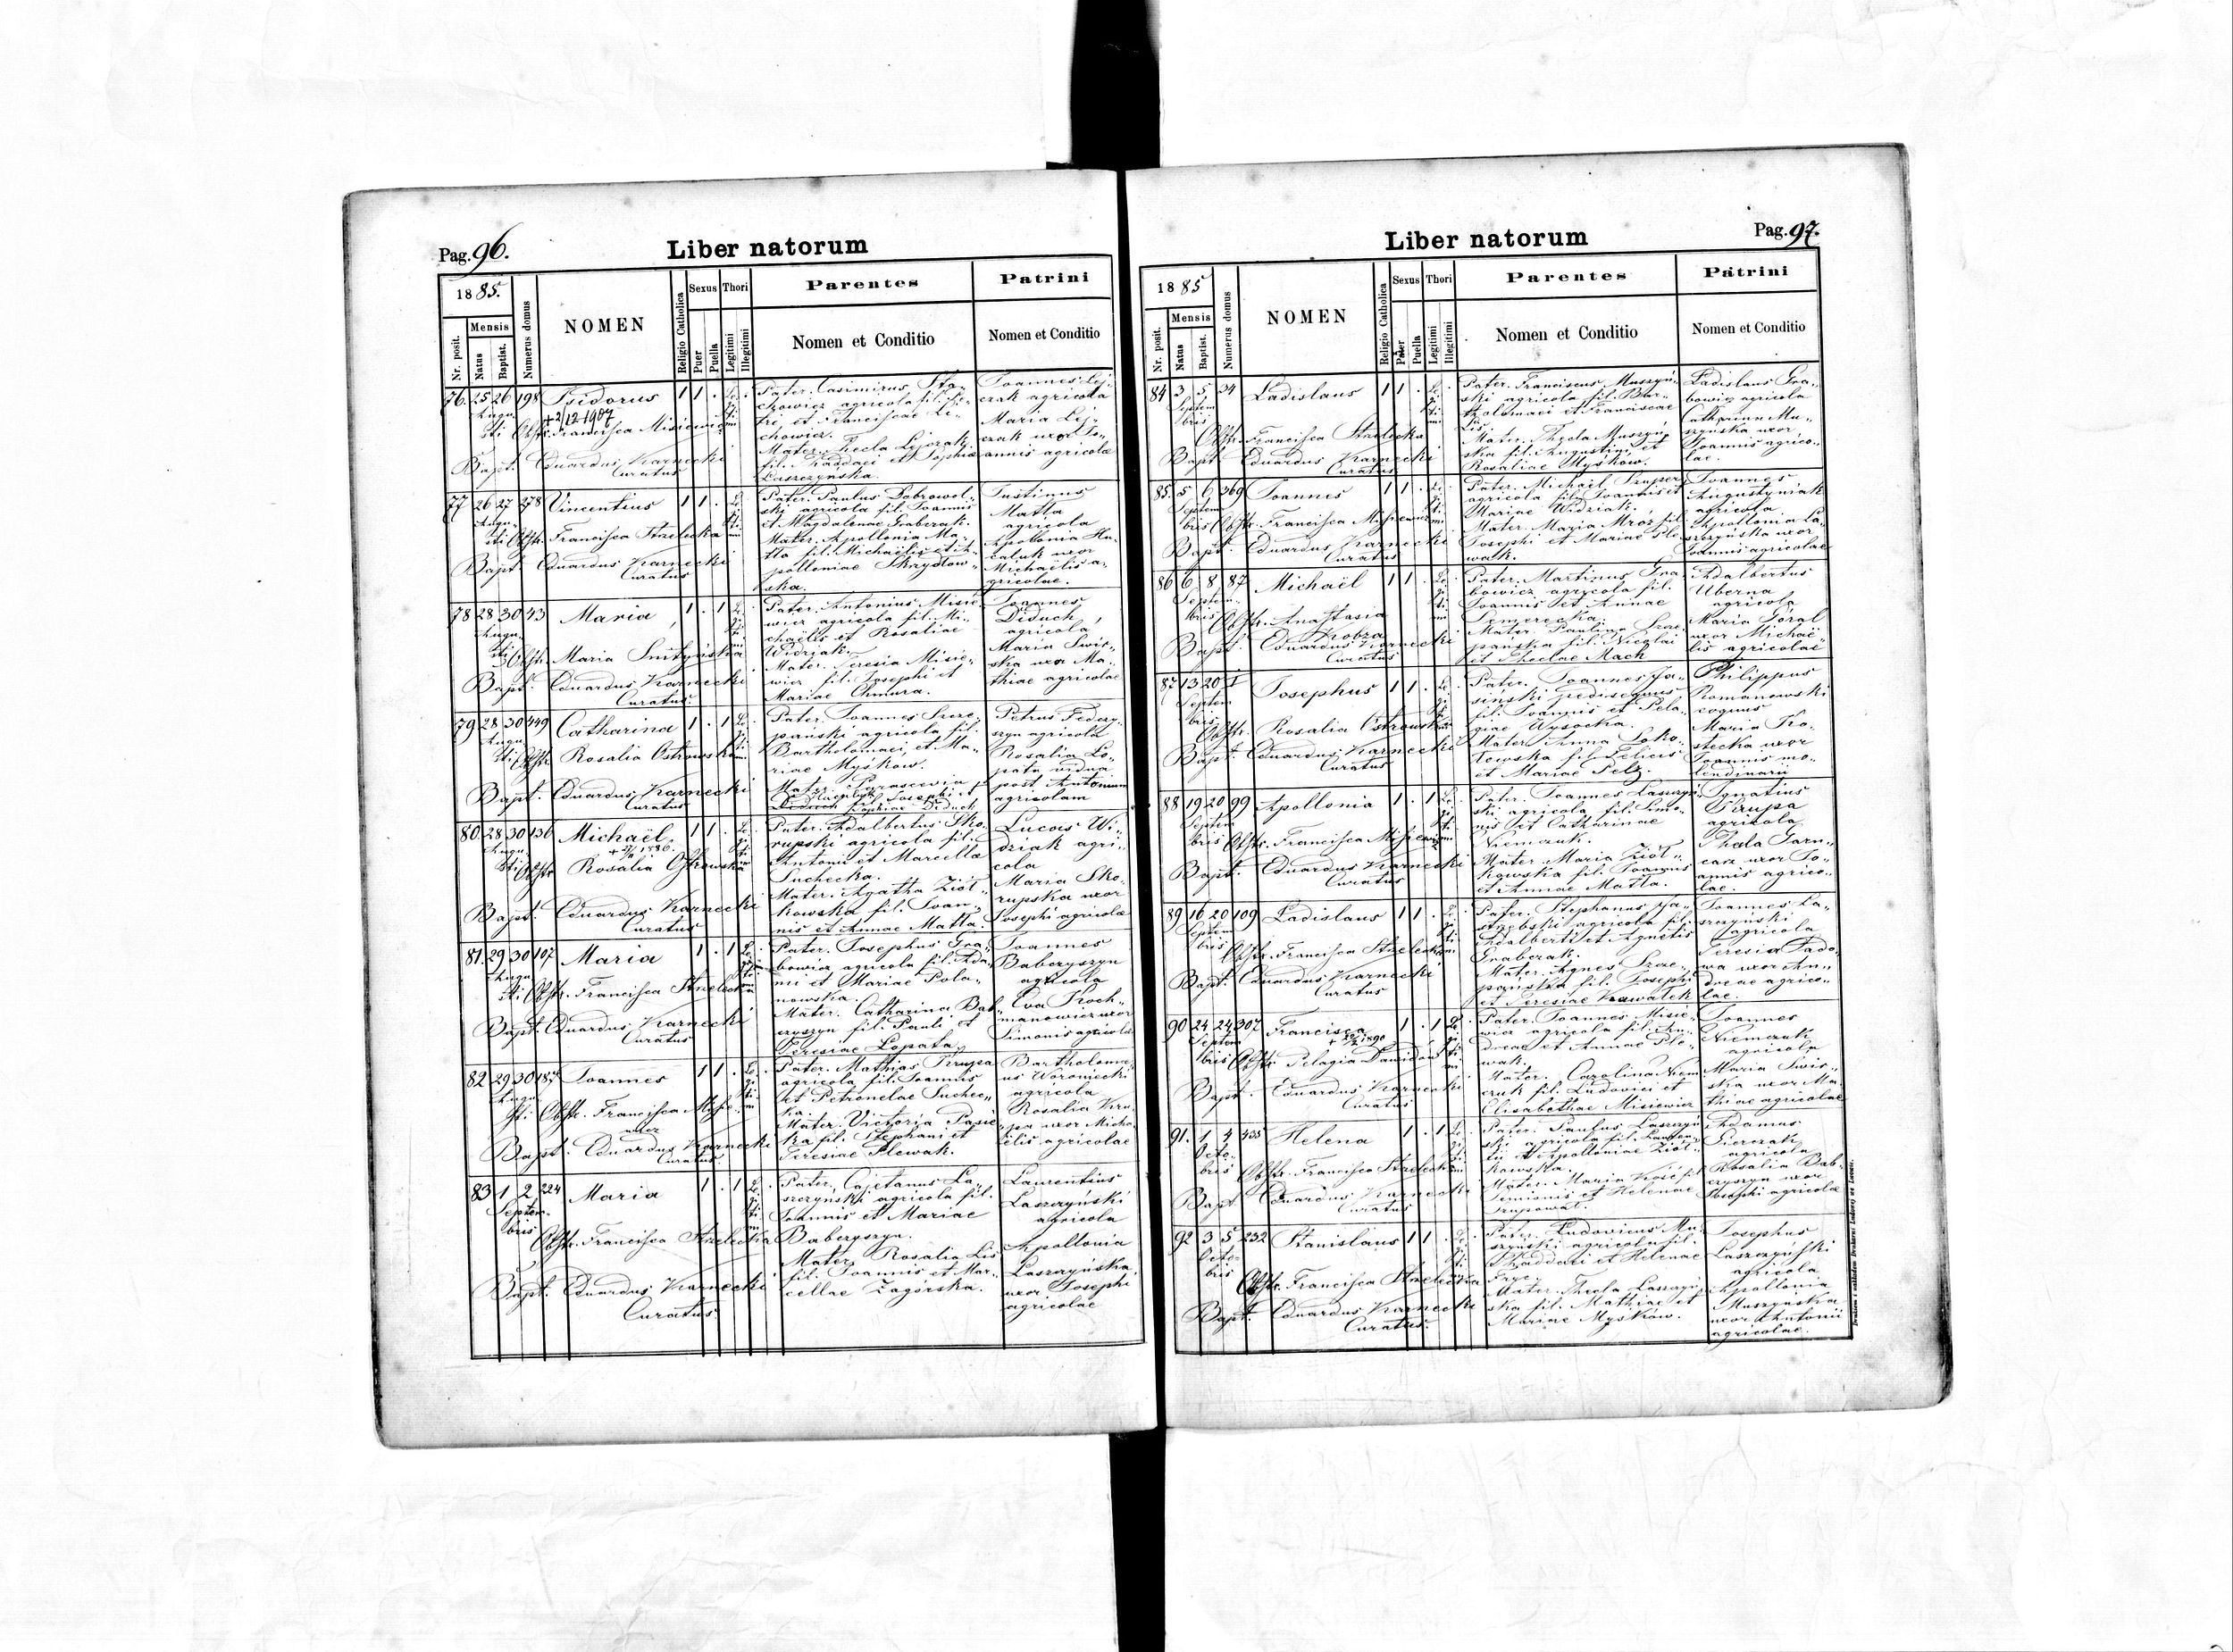 Pag. 96.
Liber natorum
1885.
Nr. posit.
Mensis
Natus
Baptist.
Numerus domus
NOMEN
Religio Catholica
Sexus
Puer
Puella
Thori
Legitimi
Illegitimi
Parentes
Nomen et Conditio
Patrini
Nomen et Conditio
76. 25 26 198 Isidorus 1 1 .
Augusti
+2/12 1907
Obstr. Francisca Misiewicz
Bapt. Eduardus Karnecki
Curatus
Pater. Casimirus Sta-
chowicz agricola fil. Pe-
tri, et Franciscae Li-
chowicz.
Mater. Thecla Lejczak,
fil. Thaddaei et Sophiae
Laszczyńska.
Joannes Lej-
czak agricola
Maria Lej-
czak uxor Jo-
annis agricolae
77 26 27 278 Vincentius 1 1 .
Augusti
Obstr. Francisca Strzelecka
Bapt. Eduardus Karnecki
Curatus
Pater. Paulus Dobrowol-
ski agricola fil. Joannis
et Magdalenae Grabczak.
Mater. Apollonia Ma-
tla fil. Michaëlis et A-
polloniae Skrzydłow-
ska.
Justinus
Matla
agricola
Apollonia Hu-
caluk uxor
Michaëlis a-
gricolae.
78 28 30 43 Maria 1 . 1
Augusti
Obstr. Maria Snityńska
Bapt. Eduardus Karnecki
Curatus
Pater. Antonius Misie-
wicz agricola fil. Mi-
chaëlis et Rosaliae
Widziak.
Mater. Teresia Misie-
wicz fil. Josephi et
Mariae Chmura.
Joannes
Diduch,
agricola
Maria Swis-
ska uxor Ma-
thiae agricolae
79 28 30 449 Catharina 1 . 1
Augusti
Obstr. Rosalia Ostrowska
Bapt. Eduardus Karnecki
Curatus
Pater. Joannes Szcze-
pański agricola fil.
Bartholomaei, et Ma-
riae Myśkow.
Petrus Fedczy-
szyn agricola
Rosalia Lo-
pata vidua
post Antonium
agricolam
80 28 30 136 Michaël 1 1 .
Augusti
Obstr. Rosalia Ostrowska
Bapt. Eduardus Karnecki
Curatus
Pater. Adalbertus Sko-
rupski agricola fil.
Antonii et Marcella
Suchecka.
Mater. Agatha Ziół-
kowska fil. Joan-
nis et Annae Matla.
Lucas Wi-
dziak agri-
cola
Maria Sko-
rupska uxor
Josephi agricolae
81. 29 30 107 Maria 1 . 1
Augusti
Obstr. Francisca Strzelecka
Bapt. Eduardus Karnecki
Curatus
Pater. Josephus Gra-
bowicz agricola fil. Ada-
mi et Mariae Pola-
nowska.
Mater. Catharina Bab-
czyszyn fil. Pauli et
Teresiae Lopata,
Joannes
Babczyszyn
agricola
Eva Koch-
manowicz uxor
Simonis agricolae
82 29 30 187 Joannes 1 1 .
Augusti
Obstr. Francisca Misie-
wicz
Bapt. Eduardus Karnecki
Curatus.
Pater. Mathias Krupa
agricola fil. Joannis
et Petronelae Suchec-
ka.
Mater. Victoria Pasie-
ka fil. Stephani et
Teresiae Plewak.
Bartholomae-
us Woroniecki
agricola
Rosalia Kru-
pa uxor Micha-
ëlis agricolae
83 1 2 224 Maria 1 . 1
Septembris
Obstr. Francisca Strzelecka
Bapt. Eduardus Karnecki
Curatus.
Pater. Cajetanus La-
szczyński agricola fil.
Joannis et Mariae
Babczyszyn.
Mater. Rosalia Lis
fil. Joannis et Mar-
cellae Zagórska.
Laurentius
Laszczyński
agricola
Apollonia
Laszczyńska
uxor Josephi
agricolae
Pag. 97.
Liber natorum
1885
Nr. posit.
Mensis
Natus
Baptist.
Numerus domus
NOMEN
Religio Catholica
Sexus
Puer
Puella
Thori
Legitimi
Illegitimi
Parentes
Nomen et Conditio
Patrini
Nomen et Conditio
84 3 5 34 Ladislaus 1 1 .
Septembris
Obstr. Francisca Strzelecka
Bapt. Eduardus Karnecki
Curatus
Pater. Franciscus Muszyń-
ski agricola fil. Bar-
tholomaei et Franciscae
Lis.
Mater. Thecla Muszyń-
ska fil. Augustini et
Rosaliae Myśkow.
Ladislaus Gra-
bowicz agricola
Catharina Mu-
szyńska uxor
Joannis agrico-
lae.
85. 5 6 369 Joannes 1 1 .
Septembris
Obstr. Francisca Misiewicz
Bapt. Eduardus Karnecki
Curatus
Pater. Michaël Szuper
agricola fil. Joannis et
Mariae Widziak.
Mater. Maria Mróz fil.
Josephi et Mariae Ple-
wak.
Joannes
Augustyniak
agricola.
Apollonia La-
szczyńska uxor
Joannis agricolae
86 6 8 87 Michaël 1 1 .
Septembris
Obstr. Anastasia
Kobza
Bapt. Eduardus Karnecki
Curatus
Pater. Martinus Gra-
bowicz agricola fil.
Joannis et Annae
Temerecka.
Mater. Paulina Szcze-
pańska fil. Nicolai
et Theclae Mach
Adalbertus
Uberna
agricola
Maria Goral
uxor Michaë-
lis agricolae
87 13 20 1 Josephus 1 1 .
Septembris
Obstr. Rosalia Ostrowska
Bapt. Eduardus Karnecki
Curatus
Pater. Joannes Ja-
siński pedisequus
fil. Joannis et Pela-
giae Wysocka.
Mater. Anna Soko-
łowska fil. Felicis
et Mariae Pelz.
Philippus
Romanowski
coquus
Maria Kro-
stecka uxor
Joannis mo-
lendinarii
88 19 20 99 Apollonia 1 . 1
Septembris
Obstr. Francisca Misiewicz
Bapt. Eduardus Karnecki
Curatus
Pater. Joannes Laszczyń-
ski agricola fil. Simo-
nis et Catharinae
Niemczuk.
Mater. Maria Ziół-
kowska fil. Joannis
et Annae Matla.
Ignatius
Krupa
agricola
Thecla Garn-
carz uxor Jo-
annis agrico-
lae.
89 16 20 109 Ladislaus 1 1 .
Septembris
Obstr. Francisca Strzelecka
Bapt. Eduardus Karnecki
Curatus
Pater. Stephanus Ja-
strzębski agricola fil.
Adalberti et Agnetis
Grabczak.
Mater. Agnes Szcze-
pańska fil. Josephi
et Teresiae Kawałek
Joannes La-
szczyński
agricola
Teresia Sado-
wa uxor An-
dreae agrico-
lae.
90 24 24 307 Francisca 1 . 1
Septembris
Obstr. Pelagia
Bapt. Eduardus Karnecki
Curatus
Pater. Joannes Misie-
wicz agricola fil. An-
dreae et Annae Ple-
wak.
Mater. Carolina Niem-
czuk fil. Ludovici et
Elisabethae Misiewicz
Joannes
Niemczuk
agricola
Maria Swis-
ska uxor Ma-
thiae agricolae
91. 1 4 435 Helena 1 . 1
Octobris
Obstr. Francisca Strzelecka
Bapt. Eduardus Karnecki
Curatus
Pater. Paulus Laszczyń-
ski agricola fil. Lauren-
tii et Apolloniae Ziół-
kowska.
Mater. Maria Kość fil.
Semionis et Helenae
Szupował.
Adamus
agricola
Rosalia Bab-
czyszyn uxor
Josephi agricolae
92 3 5 232 Stanislaus 1 1 .
Octobris
Obstr. Francisca Strzelecka
Bapt. Eduardus Karnecki
Curatus.
Pater. Ludovicus Mu-
szyński agricola fil.
Thaddaei et Helenae
Mater. Thecla Laszczyń-
ska fil. Mathiae et
Mariae Myśków.
Josephus
Laszczyński
agricola
Apollonia
Muszyńska
uxor Antonii
agricolae.